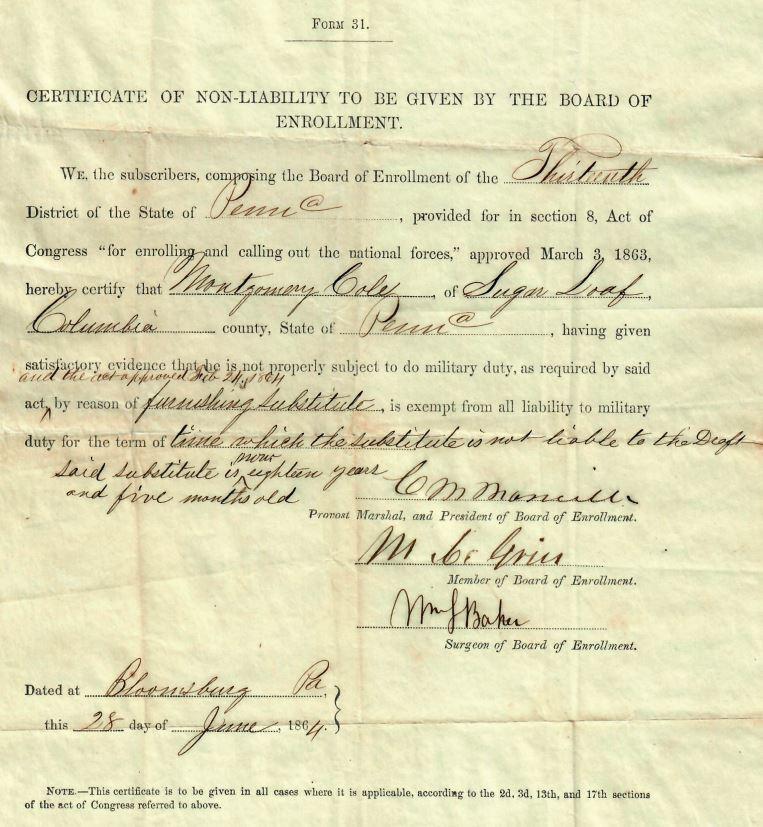 FORM 31.
CERTIFICATE OF NON-LIABILITY TO BE GIVEN BY THE BOARD OF
ENROLLMENT.
WE, the subscribers, composing the Board of Enrollment of the Thirteenth
District of the State of Penna, provided for in section 8, Act of
Congress “for enrolling and calling out the national forces,” approved March 3, 1863,
hereby certify that Montgomery Cole, of Sugar Loaf,
Columbia county, State of Penna, having given
satisfactory evidence that he is not properly subject to do military duty, as required by said
and the act approved Feb 24, 1864
act, by reason of furnishing substitute, is exempt from all liability to military
duty for the term of time which the substitute is not liable to the Draft
said substitute is over eighteen years
and five months old
C M
Provost Marshal, and President of Board of Enrollment.
M
Member of Board of Enrollment.
Wm J Baker
Surgeon of Board of Enrollment.
Dated at Bloomsburg Pa,
this 28 day of June, 1864.
NOTE.—This certificate is to be given in all cases where it is applicable, according to the 2d, 3d, 13th, and 17th sections
of the act of Congress referred to above.